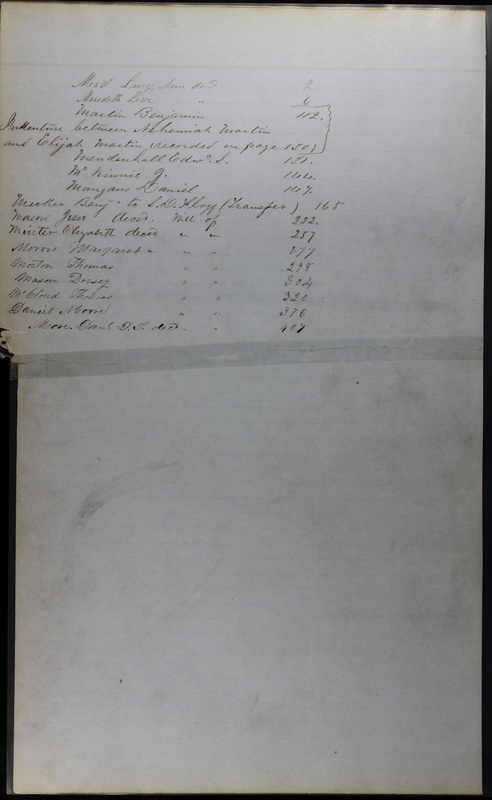 Mead Levy, decd 2
Meredith Levi " 6
Martin Benjamin 112.
Indenture between Nehemiah Martin
and Elijah Martin (recorded on page 150)
Mendenhall Edwd. S. 131.
Mc Kinnie J. 144.
Mangans Daniel 147.
Meeker Benj to S. D. (Transfer) 165
Mason decd. Will of 222.
Minter Elizabeth decd " " 257
Morris Margaret " " 277
Morton Thomas " " 298
Mason Dorsey " " 304
McCloud Thomas " " 320
Daniel Moore " " 376
Moore Paul D. S. decd " 407